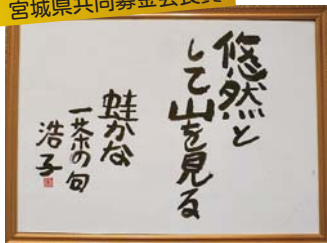 宮城県共同募金会長賞
悠然と
して山を見る
蛙かな
一茶の句
浩子